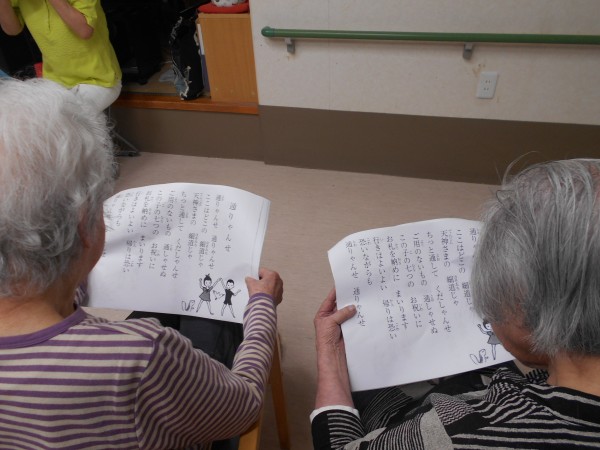 通りゃんせ
通りゃんせ 通りゃんせ
ここはどこの 細道じゃ
天神さまの 細道じゃ
ちっと通して くだしゃんせ
ご用のないもの 通しゃせぬ
この子の七つの お祝いに
お札を納めに まいります
行きはよいよい 帰りは恐い
通りゃんせ
ここはどこの 細道じゃ
天神さまの 細道じゃ
ちっと通して くだしゃんせ
ご用のないもの 通しゃせぬ
この子の七つの お祝いに
お札を納めに まいります
行きはよいよい 帰りは恐い
恐いながらも
通りゃんせ 通りゃんせ